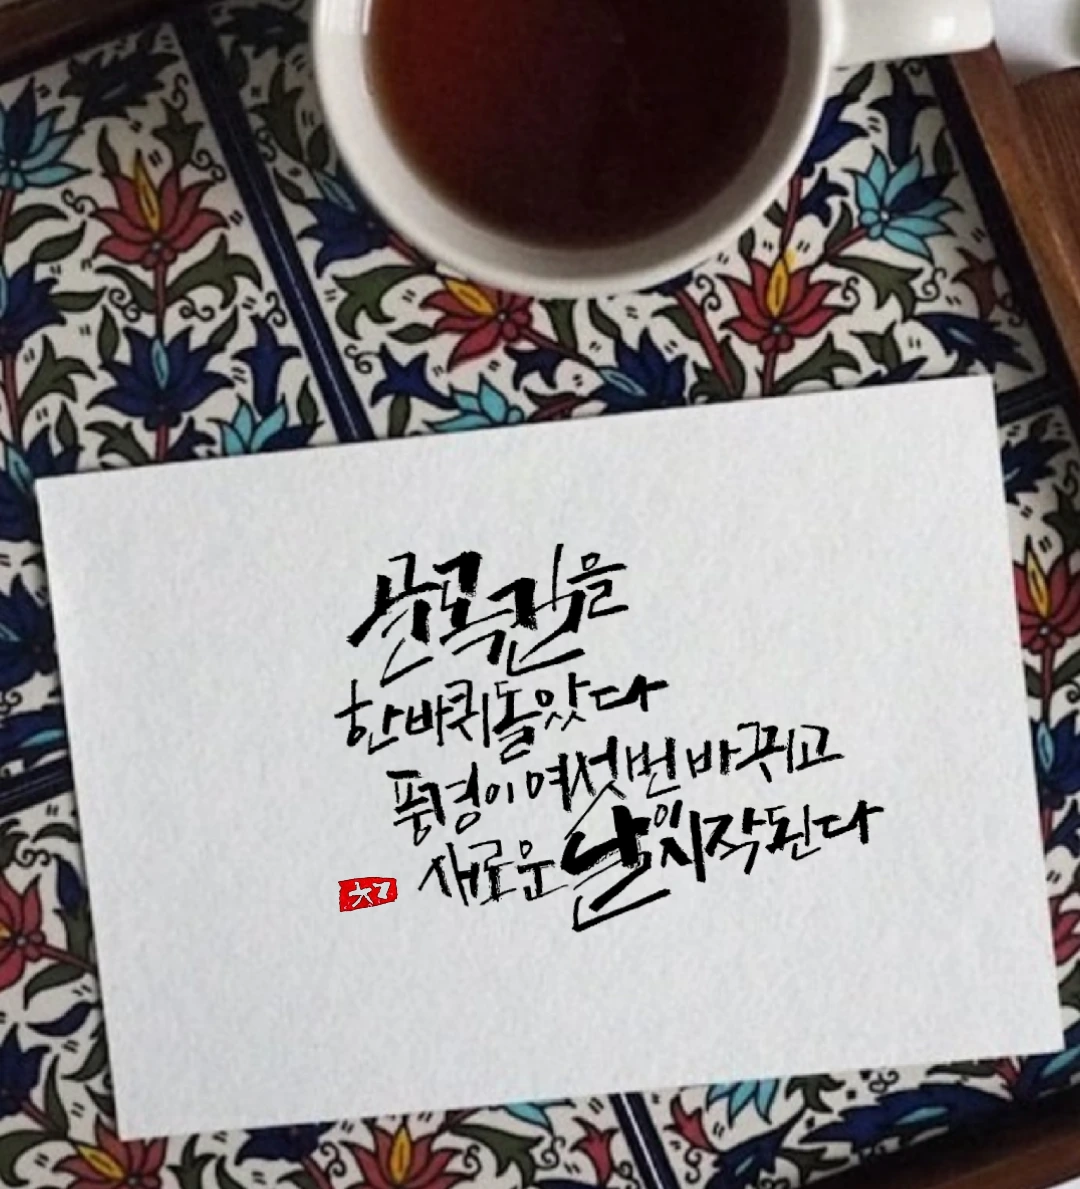 골목길을
한바퀴 돌았다
풍경이 여섯번 바뀌고
새로운 날이 시작된다